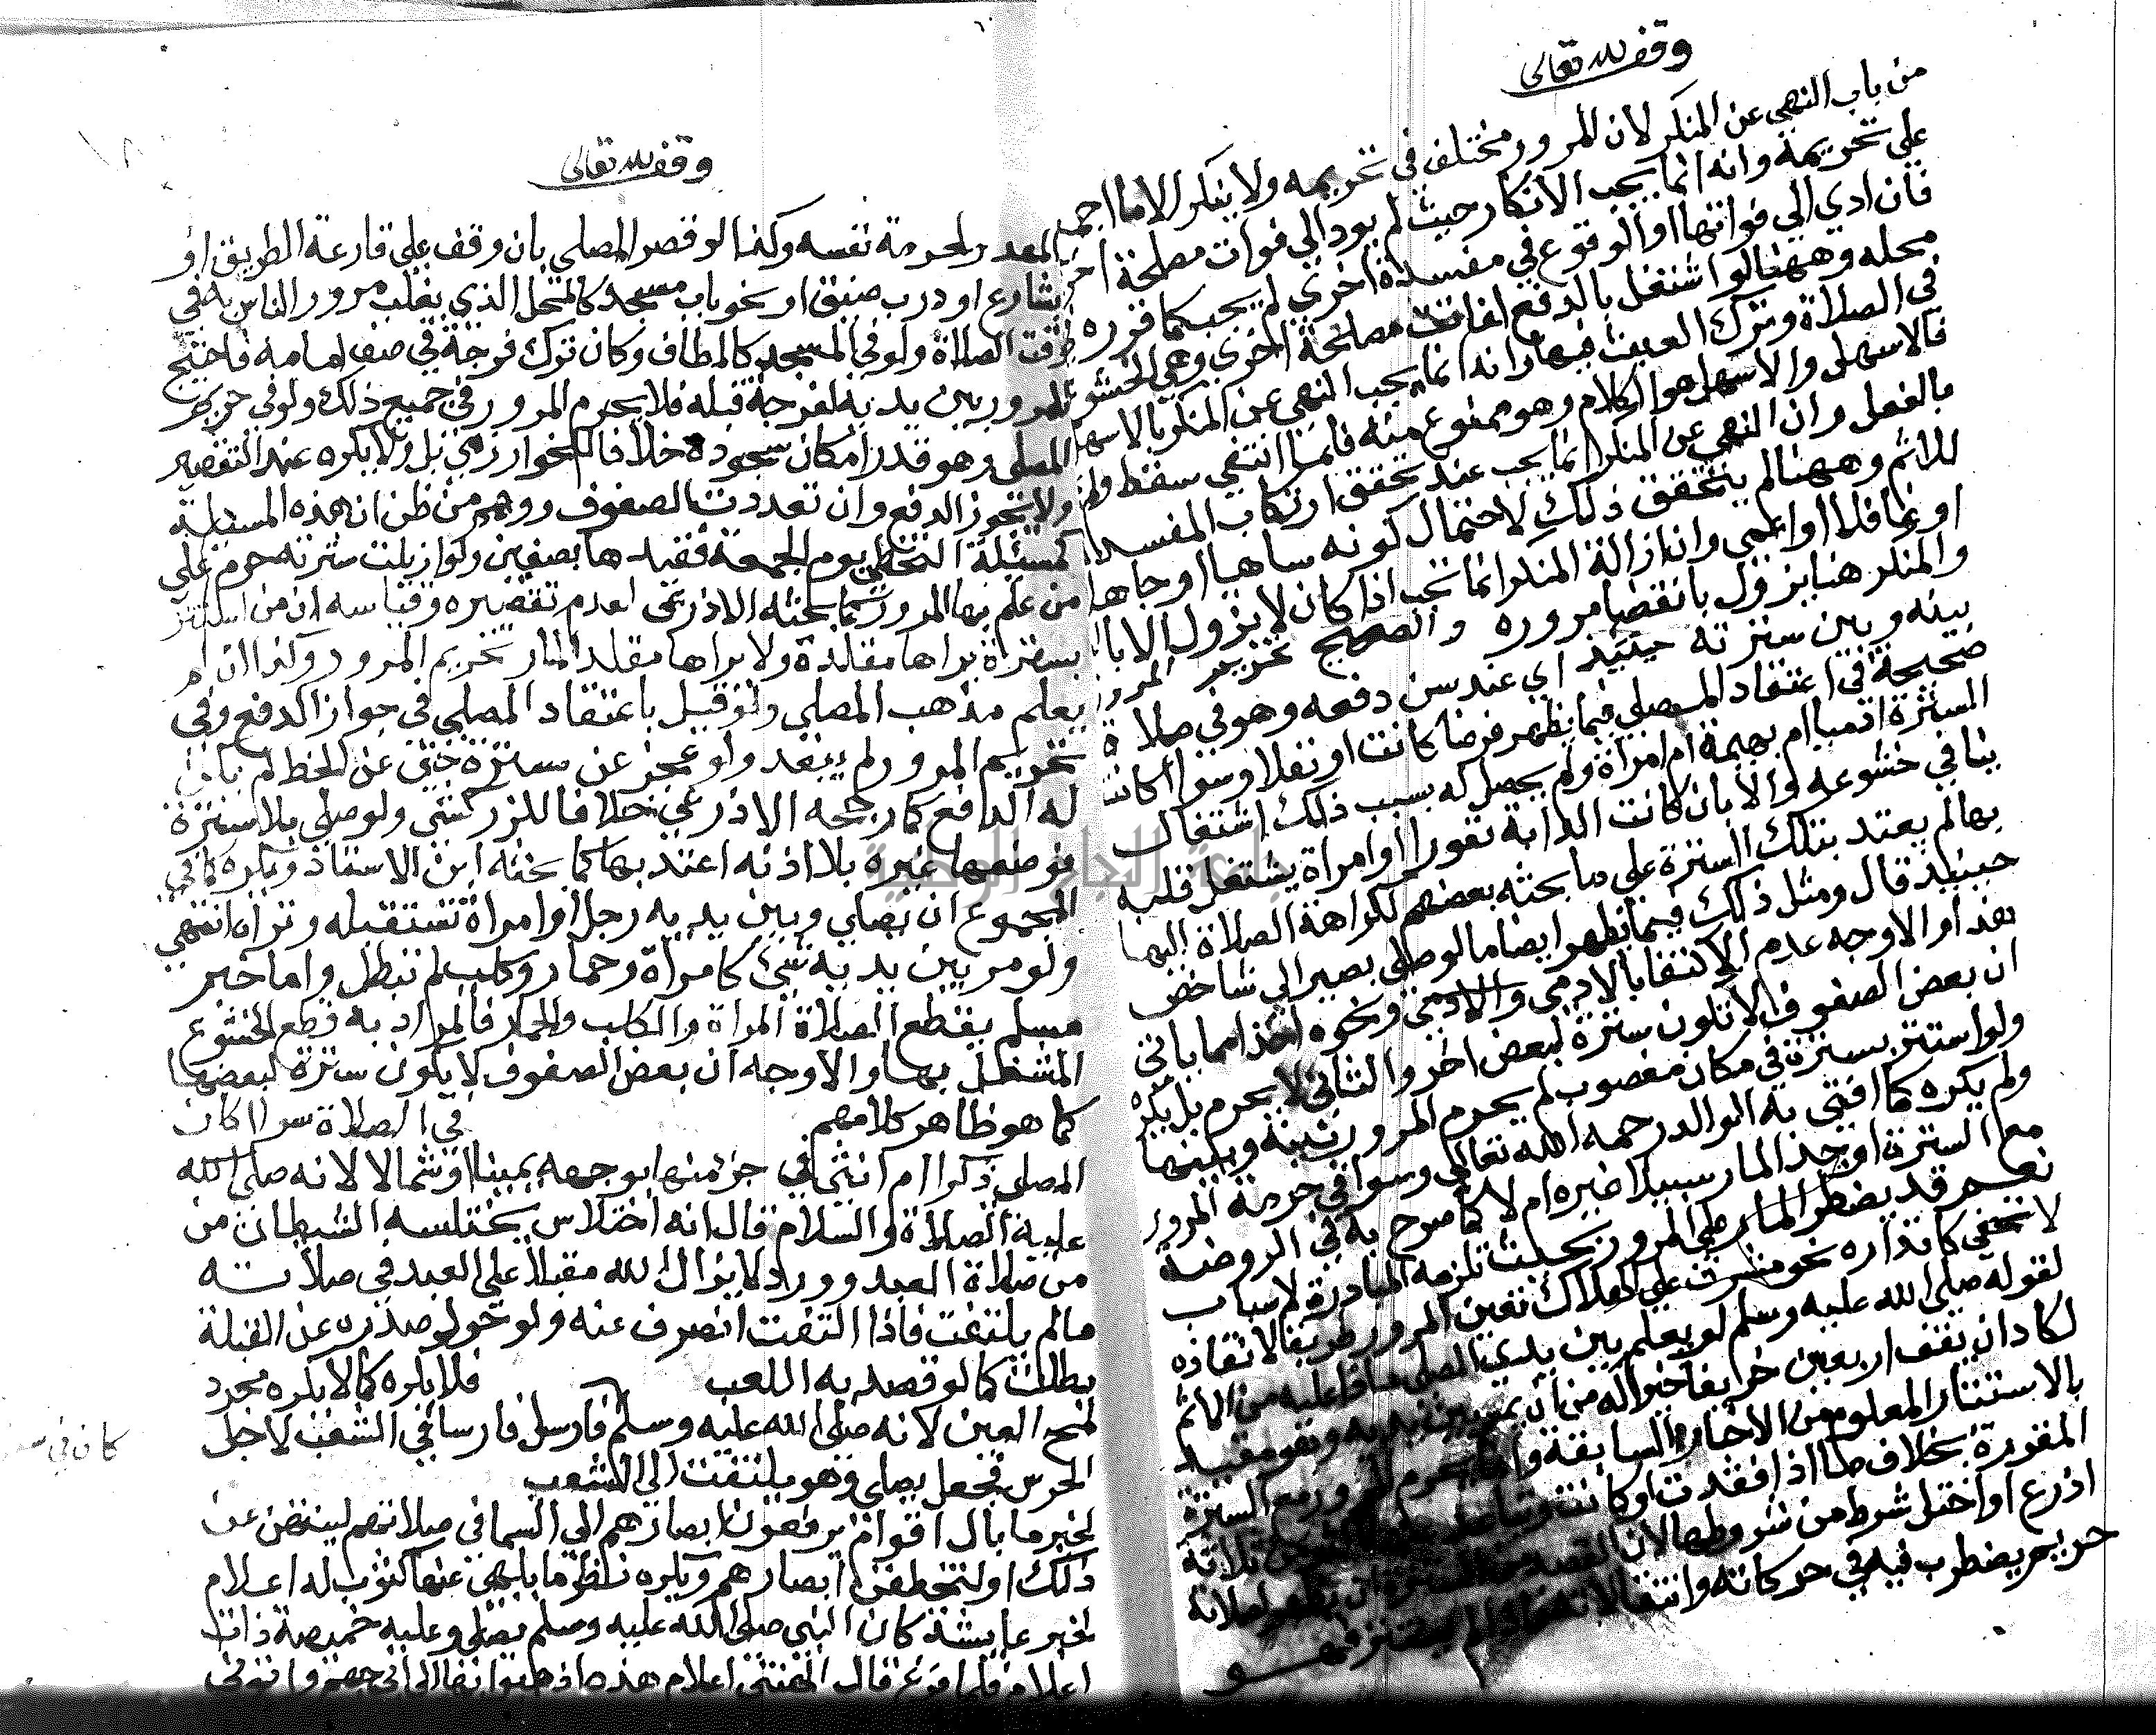 وقف لله تعالى
من باب النهي عن المنكر لان المرور مختلف في تحريمه ولا ينكر الا ما اجمع
على تحريمه وانه انما يجب الانكار حيث لم يود الي فوات مصلحة اخري
فان ادي الي فواتها او الوقوع في مفسدة اخري لم يجب كما قرره
محله وههنا لو اشتغل بالدفع لفاتت مصلحة اخري وهي الخشوع
في الصلاة وترك العبث فيها وانه انما يجب النهي عن المنكر بالاسهل
فالاسهل والاسهل هو الكلام وهو ممنوع منه فلما انتفي سقط ولم
بالفعل وان النهي عن المنكر انما يجب عند تحقق ارتكاب المفسدة
للاثم وههنا لم يتحقق ذلك لاحتمال كونه ساهيا او جاهلا
او غافلا او اعمي وان ازالة المنكر انما تجب اذا كان لا يزول الا با
والمنكر هنا يزول بانقضا مروره والصحيح تحريم المرور
بينه وبين سترته حينيذ اي عند سن دفعه وهو في صلاة
صحيحة في اعتقاد المصلي فيما يظهر فرضا كانت او نفلا وسوا كانت
السترة ادميا ام بهيمة ام امراة ولم يحصل له بسبب ذلك اشتغال
ينافي خشوعه والا بان كانت الدابة نفورا او امراة يشتغل قلبه
بها لم يعتد بتلك السترة علي ما بحثه بعضهم لكراهة الصلاة اليها
حينيذ قال ومثل ذلك فيما يظهر ايضا ما لو صلي بصير الي شاخص
هذا والاوجه عدم الاكتفا بالادمي والادمي ونحوه اخذا مما ياتي
ان بعض الصفوف لا تكون سترة لبعض اخر والثاني لا يحرم بل يكره
ولو استتر بسترة في مكان مغصوب لم يحرم المرور بينه وبينها
ولم يكره كما افتي به الوالد رحمه الله تعالي وسوا في حرمة المرور
مع السترة اوجد المار سبيلا غيره ام لا كما صرح به في الروضة
نعم قد يضطر المار الي المرور بحيث تلزمه المبادرة لاسباب
لا تخفي كانذاره نحو مشرف علي الهلاك تعين المرور طريقا لانقاذه
لقوله صلي الله عليه وسلم لو يعلم بين يدي المصلي ماذا عليه من الاثم
لكان ان يقف اربعين خريفا خيرا له من ان يمر بين يديه وهو مقيد
بالاستتار المعلوم من الاخبار السابقة وانما يحرم المرور مع السترة
المقررة بخلاف ما اذا فقدت او كانت وتباعد عنها فوق ثلاثة
اذرع او اختل شرط من شروطها لان القصد من السترة ان يظهر لصلاته
حريم يضطرب فيه في حركاته وانتقالاته فاذا لم يستتر فهو
وقف لله تعالى
المهدر لحرمة نفسه وكذا لو قصر المصلي بان وقف علي قارعة الطريق او
بشارع او درب ضيق او نحو باب مسجد كالمحل الذي يغلب مرور الناس به في
وقت الصلاة ولو في المسجد كالمطاف وكان ترك فرجة في صف امامه فاحتيج
للمرور بين يديه لفرجة قبله فلا يحرم المرور في جميع ذلك ولو في حريم
المصلي وهو قدر امكان سجوده خلافا للخوارزمي بل ولا يكره عند التقصير
ولا يجوز الدفع وان تعددت الصفوف ووهم من ظن ان هذه المسئلة
كمسئلة التخطي يوم الجمعة فقيدها بصفين ولو ازيلت سترته حرم علي
من علم بها المرور كما بحثه الاذرعي لعدم تقصيره وقياسه ان من استتر
بسترة يراها مقلده ولا يراها مقلد المار تحريم المرور وكذا ان لم
يعلم مذهب المصلي ولو قيل باعتقاد المصلي في جواز الدفع وفي
تحريم المرور لم يبعد ولو عجز عن سترة حتي عن الخط لم يكن
له الدفع كما رجحه الاذرعي خلافا للزركشي ولو صلي بلا سترة
فوضعها غيره بلا اذنه اعتد بها كما بحثه ابن الاستاذ ويكره كما في
المجموع ان يصلي وبين يديه رجل او امراة تستقبله وتراه انتهي
ولو مر بين يديه شي كامراة وحمار وكلب لم تبطل واما خبر
مسلم يقطع الصلاة المراة والكلب والحمار فالمراد به قطع الخشوع
المشغل بها والاوجه ان بعض الصفوف لا يكون سترة لبعضها
كما هو ظاهر كلامهم في الصلاة سوا كان
المصلي ذكرا ام انثي في جزء منها بوجهه يمينا او شمالا لانه صلي الله
عليه الصلاة والسلام قال انه اختلاس يختلسه الشيطان من
من صلاة العبد وورد لا يزال الله مقبلا علي العبد في صلاته
مالم يلتفت فاذا التفت انصرف عنه ولو حول صدره عن القبلة
بطلت كما لو قصد به اللعب فلا يكره كما لا يكره مجرد
لمح العين لانه صلي الله عليه وسلم فارسل فارسا في الشعب لاجل
الحرس فجعل يصلي وهو يلتفت الي الشعب
كان في
لخبر ما بال اقوام يرفعون ابصارهم الي السما في صلاتهم لينتهن عن
ذلك او لتخطفن ابصارهم ويكره نظر ما يلهي عنها كثوب له اعلام
لخبر عايشة كان النبي صلي الله عليه وسلم يصلي وعليه خميصة ذات
اعلام فلما فرغ قال الهتني اعلام هذه اذهبوا بها الي ابي جهم واتوني